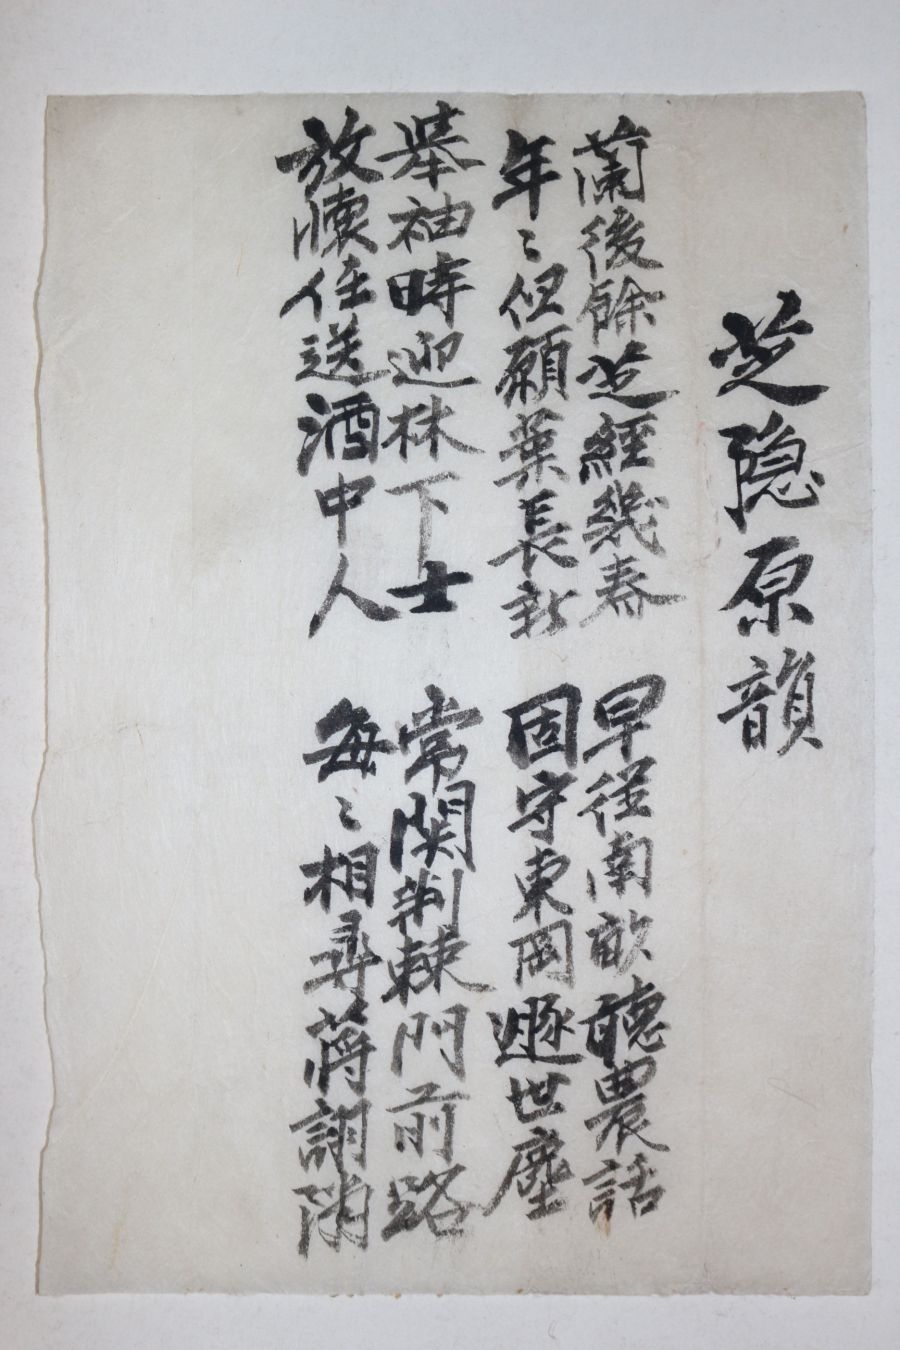 芝隐原韻
蘭後餘芝經幾春
年〻但願葉長新
早從南畝聽農話
固守東岡遯世塵
舉袖時迎林下士
放懷任送酒中人
常関荆棘門前路
每〻相尋蔣詡隣